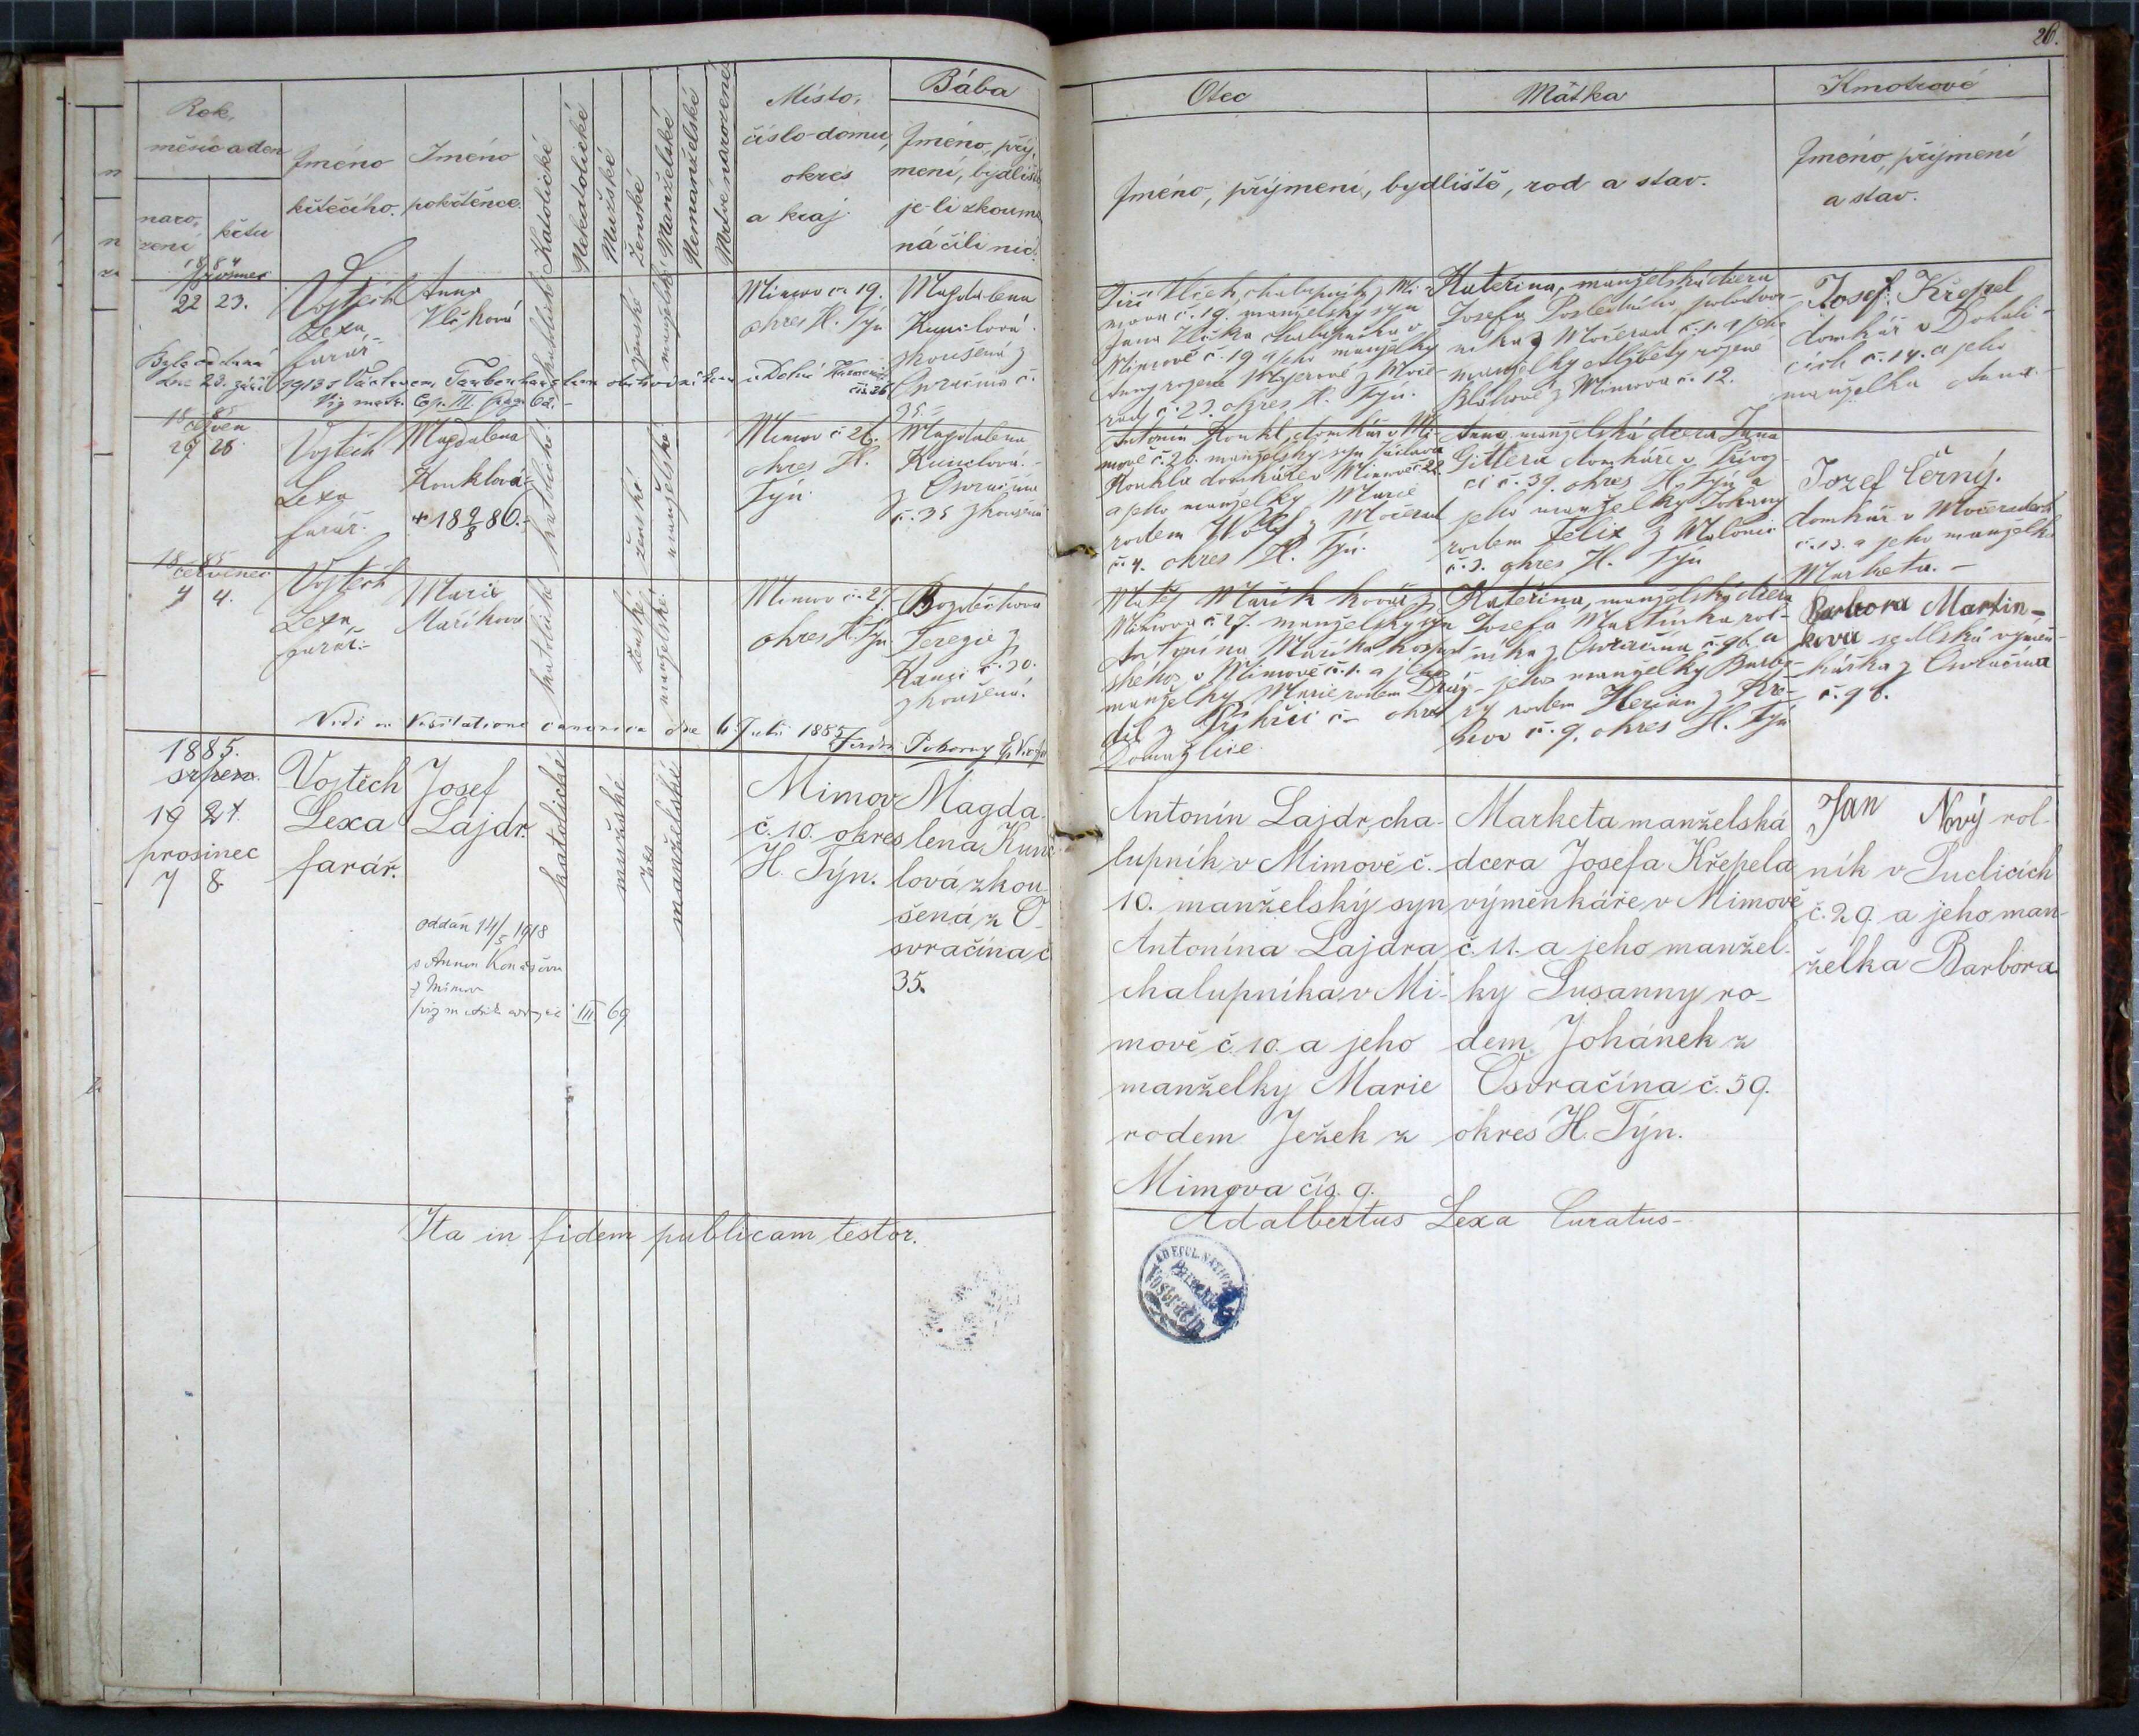 20.
Rok,
měsíc a den
naro-
zení
křtu
Jméno
křtícího.
Jméno
pokřtěnce.
Katolické
Nekatolické
Mužské
Ženské
Manželské
Nemanželské
Mrtvě narozené
Místo,
číslo domu,
okres
a kraj.
Bába
Jméno, příj-
mení, bydliště,
je-li zkouma
ná čili nic.
Otec
Mátka
Jméno, příjmení, bydliště, rod a stav.
Kmotrové
Jméno, příjmení
a stav.
1884
22 23.
Vojtěch
Lexa
farář
Anna
Vlčková
katolické
ženské
manželské
Mimov č. 19.
okres H. Týn
Magdalena
Kunclová
zkoušená z
Osvračína č.
35.
Jiří Vlček, chalupník z Mi-
mova č. 19. manželský syn
Jana Vlčka chalupníka v
Mimově č. 19 a jeho manželky
Anny rozené
č. 23. okres H. Týn.
Kateřina, manželská dcera
Josefa
z Močerad č. 1. a jeho
manželky Alžběty rozené
Bláhové z Mimova č. 12.
Josef Křepel
domkář v Dohali-
cích č. 14. a jeho
manželka Anna.
Byla oddaná
dne 23. září 1913 s Václavem
Viz matr. Cop. III. pag. 62.
1885
červen
27 28
Vojtěch
Lexa
farář.
Magdalena
Konklová
katolické
ženské
manželské
Mimov č. 26.
okres H.
Týn
Magdalena
Kunclová
z Osvračína
č. 35 zkoušená
Antonín Konkl, domkář v Mi-
mově č. 26. manželský syn Václava
Konkla domkáře v Mimově č. 22
a jeho manželky Marie
rodem Wolf z Močerad
č. 4. okres H. Týn.
Anna manželská dcera Jana
Gittera domkáře v
č. 39. okres H. Týn a
jeho manželky Johany
rodem Felix z
č. 3. okres H. Týn
Jozef Černý.
domkář v Močeradech
č. 13. a jeho manželka
Marketa. –
1885
červenec
4 4.
Vojtěch
Lexa
farář.
Marie
Maříková
katolické
ženské
manželské
Mimov č. 27.
okres H. Týn
Bozděchova
Terezie z
č. 30.
zkoušená.
Matěj Mařík kovář z
Mimova č. 27. manželský syn
Antonína Maříka
v Mimově č. 1. a jeho
manželky Marie rodem
okres
Domažlice.
Kateřina, manželská dcera
Josefa Martínka rol-
níka z Osvračína č. 96. a
jeho manželky Barbo-
ry rodem
č. 9. okres H. Týn
Barbora Martin-
kova
z Osvračína
č. 96.
Vidi in Visitatione canonica die 6. Julii 1885
1885.
srpen.
19 21.
prosinec
7 8.
Vojtěch
Lexa
farář.
Josef
Lajdr.
katolické
mužské
manželské
Mimov
č. 10. okres
H. Týn.
Magda-
lena Kunc
lová zkou
šená z O-
svračína č
35.
Antonín Lajdr, cha-
lupník v Mimově č.
10. manželský syn
Antonína Lajdra
chalupníka v Mi-
mově č. 10. a jeho
manželky Marie
rodem Ježek z
Mimova čís. 9.
Marketa manželská
dcera Josefa Křepela
výměnkáře v Mimově
č. 11. a jeho manžel-
ky Susanny ro-
dem Johánek z
Osvračína č. 59.
okres H. Týn.
Jan Nový rol-
ník v Puclicích
č. 29. a jeho man-
želka Barbora
oddán 14/5 1918
s Annou
z Mimova
III 69
Ita in fidem publicam testor.
Adalbertus Lexa Curatus